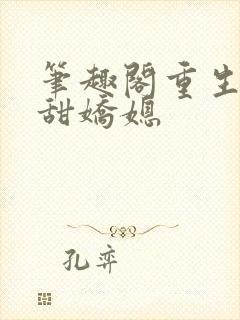 筆趣閣重生
甜嬌媳
孔弈